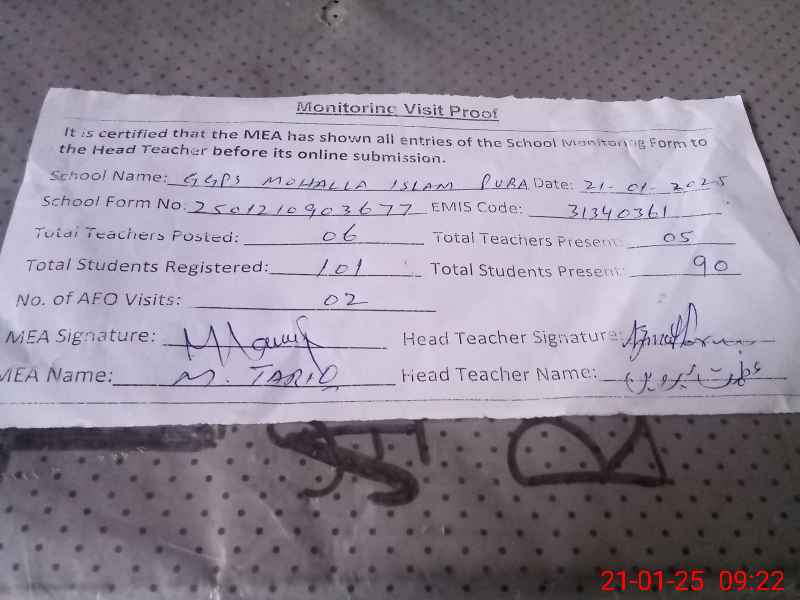 Monitoring Visit Proof
It is certified that the MEA has shown all entries of the School Monitoring Form to
the Head Teacher before its online submission.
School Name: GGPS MOHALLA ISLAM PURA Date: 21-01-2025
School Form No. 2501210903677 EMIS Code: 31340361
Total Teachers Posted: 06 Total Teachers Present: 05
Total Students Registered: 101 Total Students Present: 90
No. of AFO Visits: 02
MEA Signature: Head Teacher Signature:
MEA Name: M. TARIQ Head Teacher Name: عظمت پروین
21-01-25 09:22